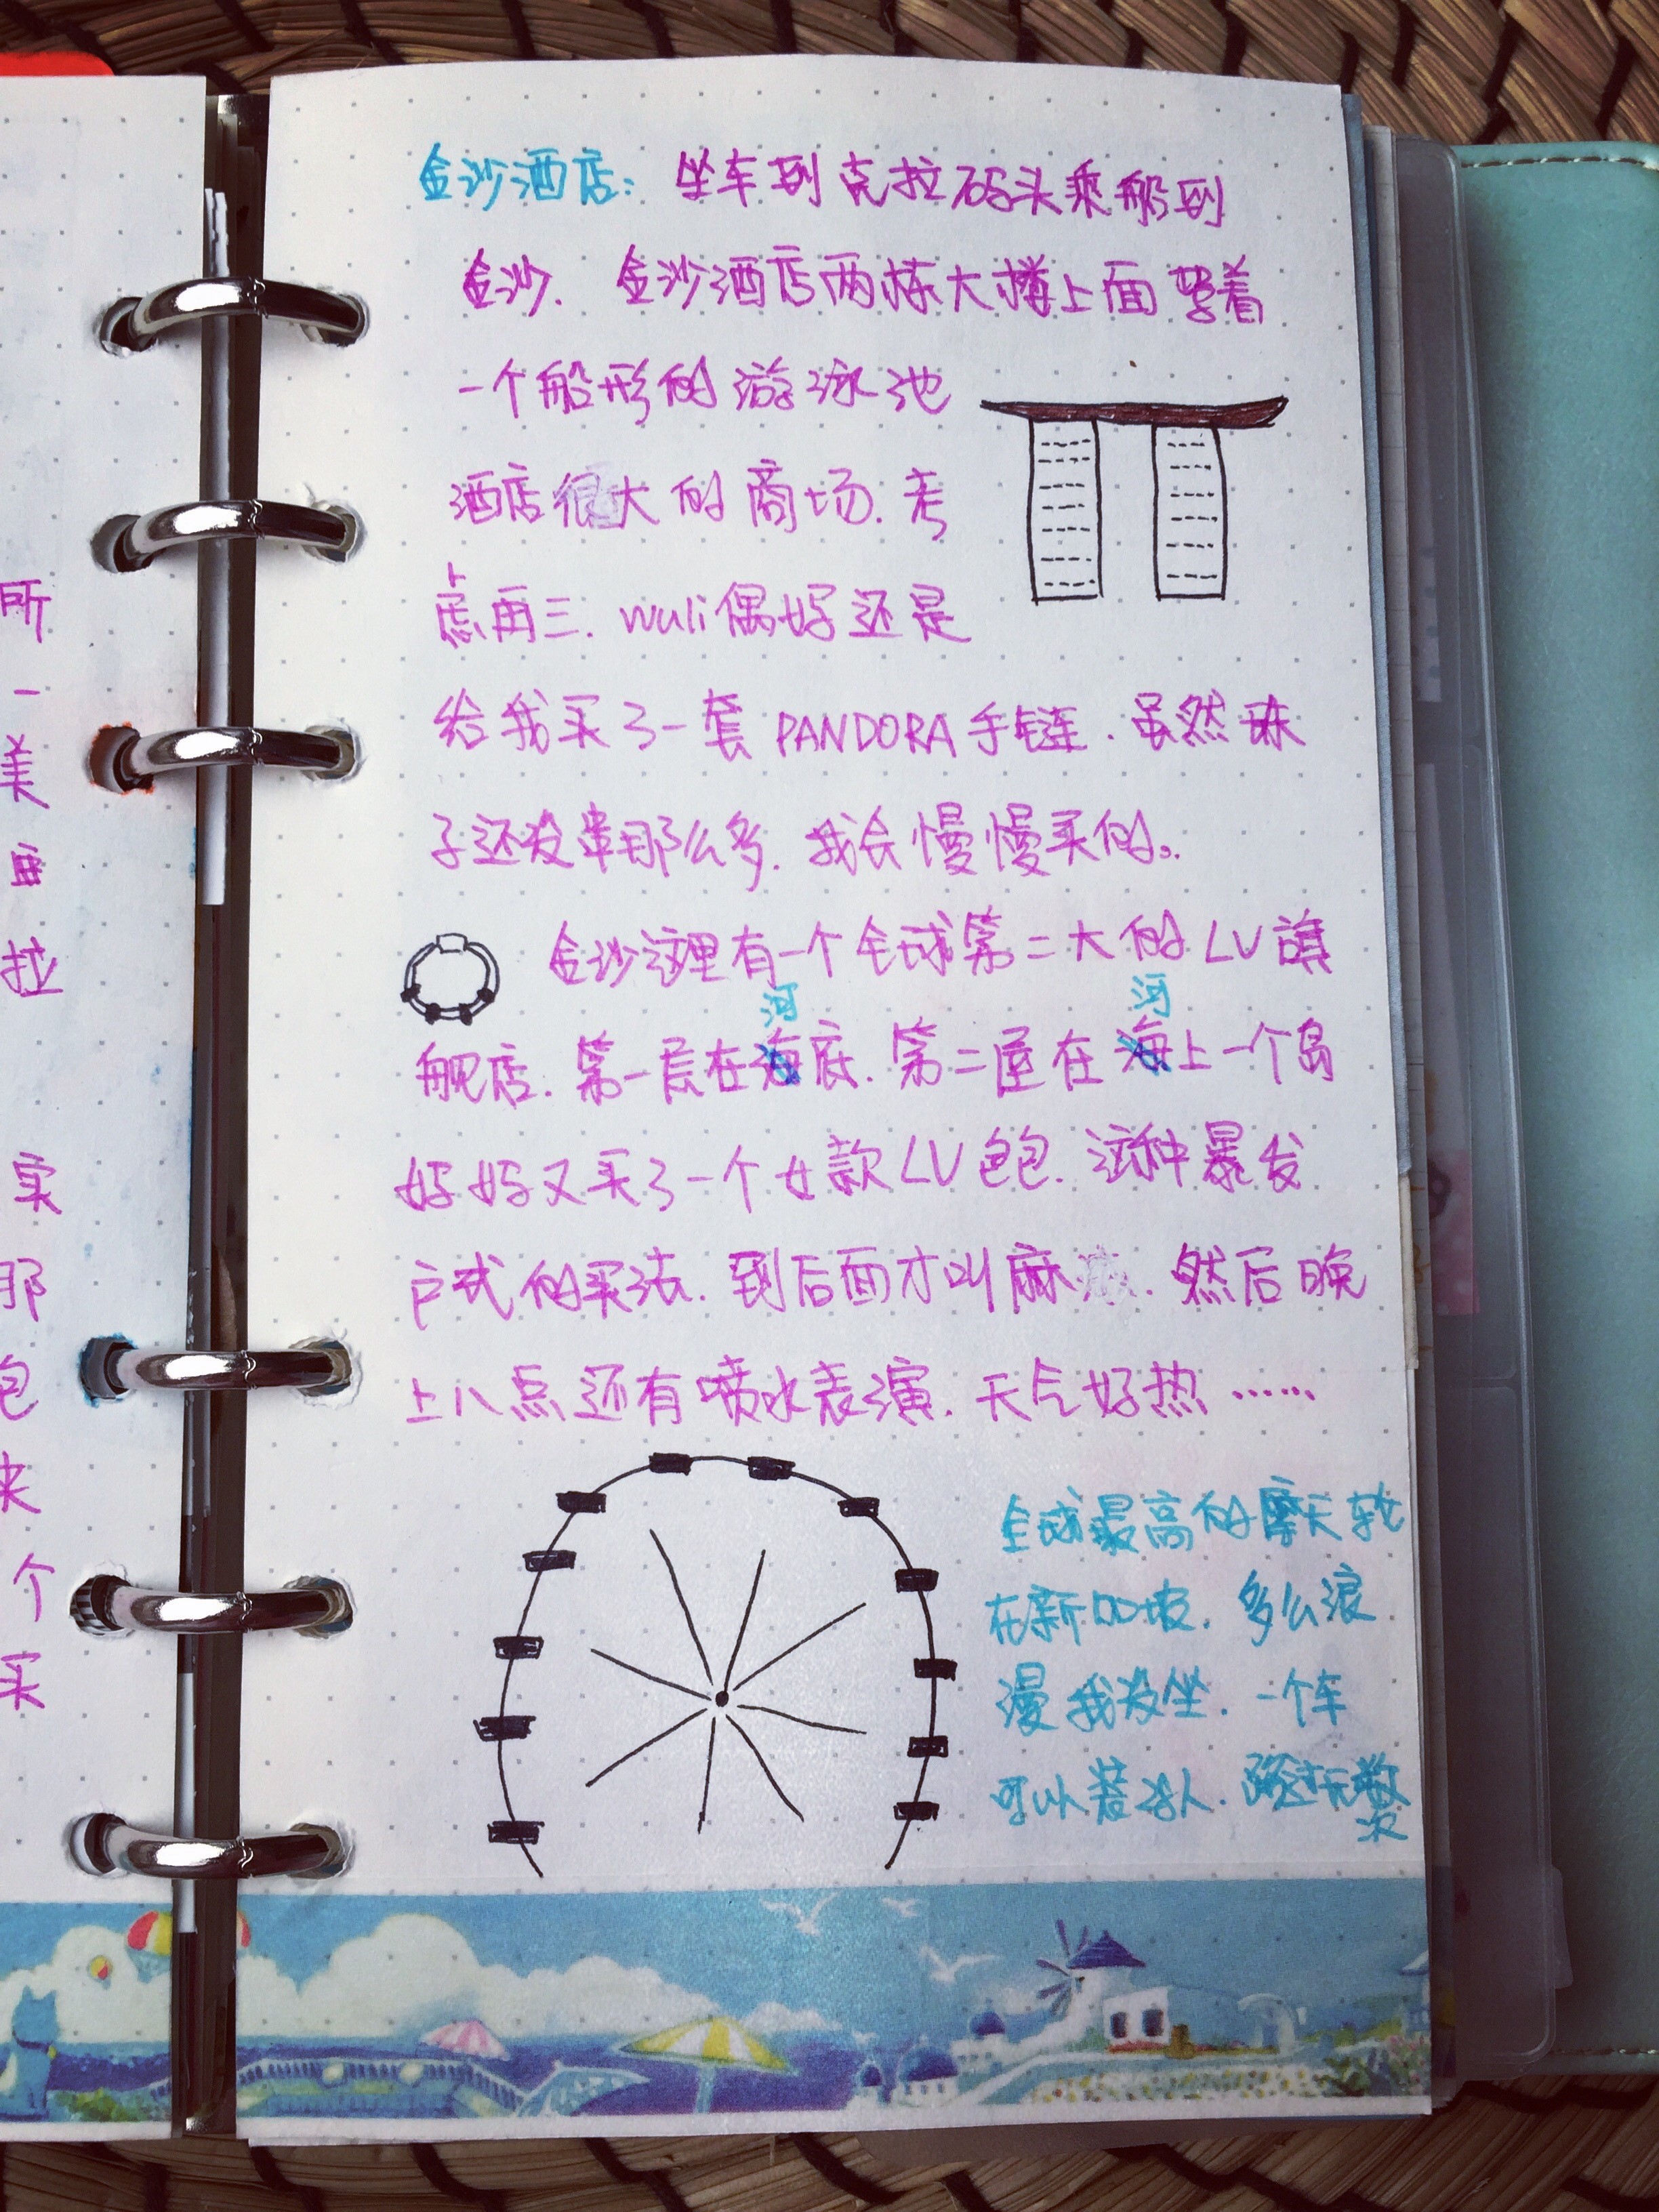 所
一
美
拉
实
那
包
来
个
买
金沙酒店：坐车到克拉码头乘船到
金沙．金沙酒店两栋大楼上面擎着
一个船形的游泳池
酒店很大的商场．考
虑再三．wuli偶好还是
给我买了一套PANDORA手链．虽然珠
子还没串那么多．我会慢慢买的。
金沙这里有一个全球第二大的LV旗
河 河
舰店．第一层在海底．第二层在海上一个岛
好好又买了一个女款LV包包．这种暴发
户式的买法．到后面才叫麻痹．然后晚
上八点还有喷水表演．天气好热……
全球最高的摩天轮
在新加坡．多么浪
漫我没坐．一个车
可以装 人．路过无数
次